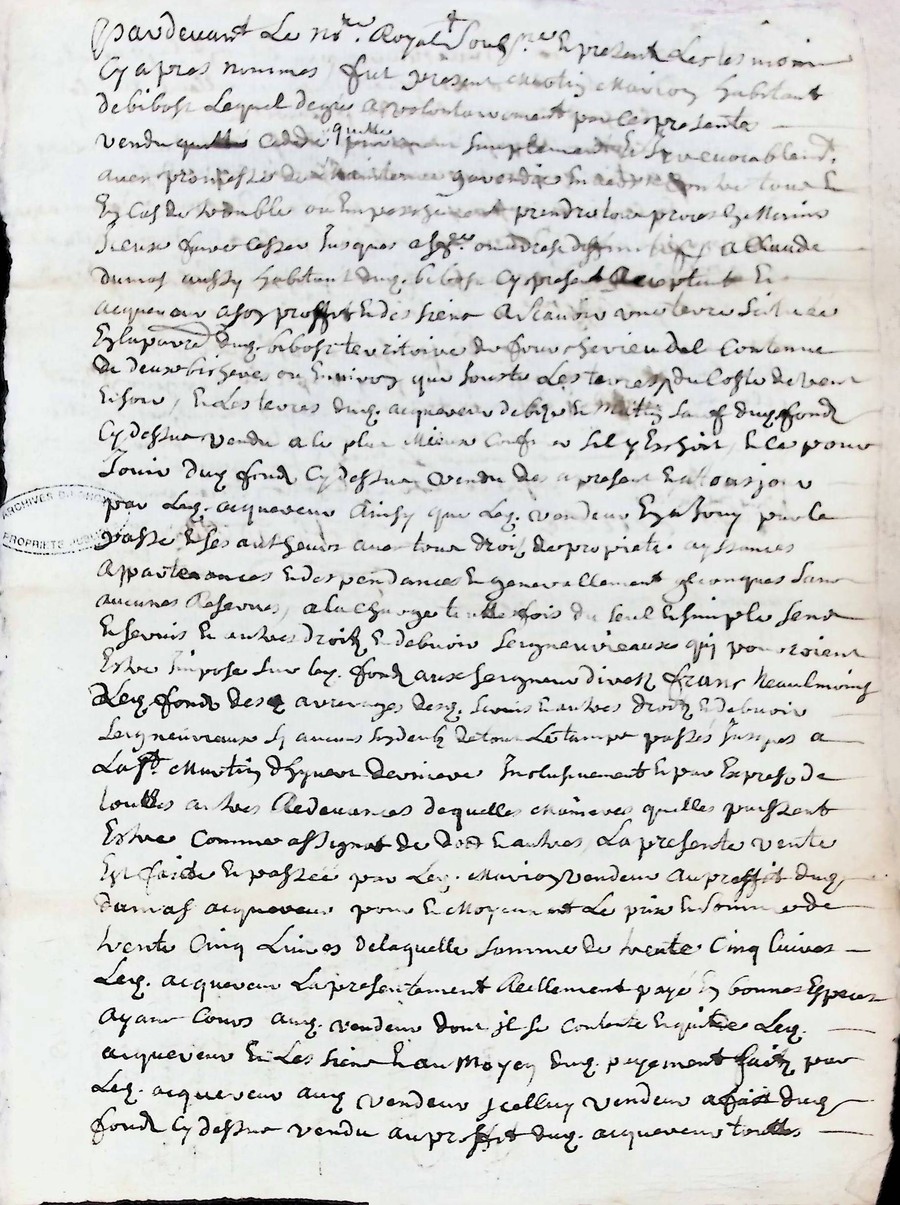 Pardevant Le no.re Royal soubs.ne Et present Les tesmoins
Cy apres nommes, fut present Marion habitant
de bibost Lequel de gre a volontairement par ces presente
vendu quitte cedde purement simplement Et Irrevocablemt.
avec promesse de maintenir garendir En tous Et
En Cas de trouble ou Empeschement prendre
faire cesser Jusques a a Claude
dumas aussy habitant dud. bibost Cy present acceptant Et
acquereur a soy proffit Et des siens Ascavoir une terre Scituée
En la parre. dud. bibost territoire de Contenue
de deux bicherées ou Environ que Jouste Les terres du Coste de vent
Et soir, Et Les terres dud. acquereur de bize Et Matin sauf dud fond
Cy dessus vendu a le plus Mieux Sil y Eschoit, Et Ce pour
Jouir dud fond Cy dessus vendu des a present Et a tousjour
par Led. acquereur Ainsy que Led. vendeur En a Jouy par le
passé Et ses autheurs avec tous droit de propriete. aysances
Appartenances Et despendances Et generallement qlconques sans
aucunes Reserves, a la charge toutte fois du seul Et simple sens
Et servis Et autres droitz Et debvoir Seigneuriaux qui pourroient
Estre Imposé sur led. fond aux seigneur direct franc neaulmoins
Led. fond des arrerages desd. servis Et autres droitz Et debvoir
Seigneuriaux sy aucuns de tout Le temps passés Jusques a
La St. Martin d'hyver derniere Inclusivement Et par Expres de
touttes autres Redevances de quelles Manieres quelles puissent
Estre Comme assignat de dot Et autres, La presente vente
Est faicte Et passée par Led. Marion vendeur au proffit dud
dumas acquereur pour Et Moyennant Le prix Et somme de
trente Cinq Livres de laquelle somme de trente Cinq livres
Led. acquereur La presentement Reellement payé En bonnes Especes
ayant Cours aud. vendeur dont il se Contente Et quitte Led.
acquereur Et Les siens Et au Moyen dud. payement faitz par
Led. acquereur aud vendeur Jcelluy vendeur a fait dud
fond Cy dessus vendu au proffit dud. acquereur touttes
ARCHIVES DU
PROPRIETE PUBLIQUE